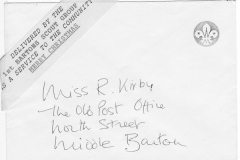 DELIVERED BY THE
1st BARTONS SCOUT GROUP
AS A SERVICE TO THE COMMUNITY
MERRY CHRISTMAS
Miss R. Kirby
The Old Post Office
North Street
Middle Barton